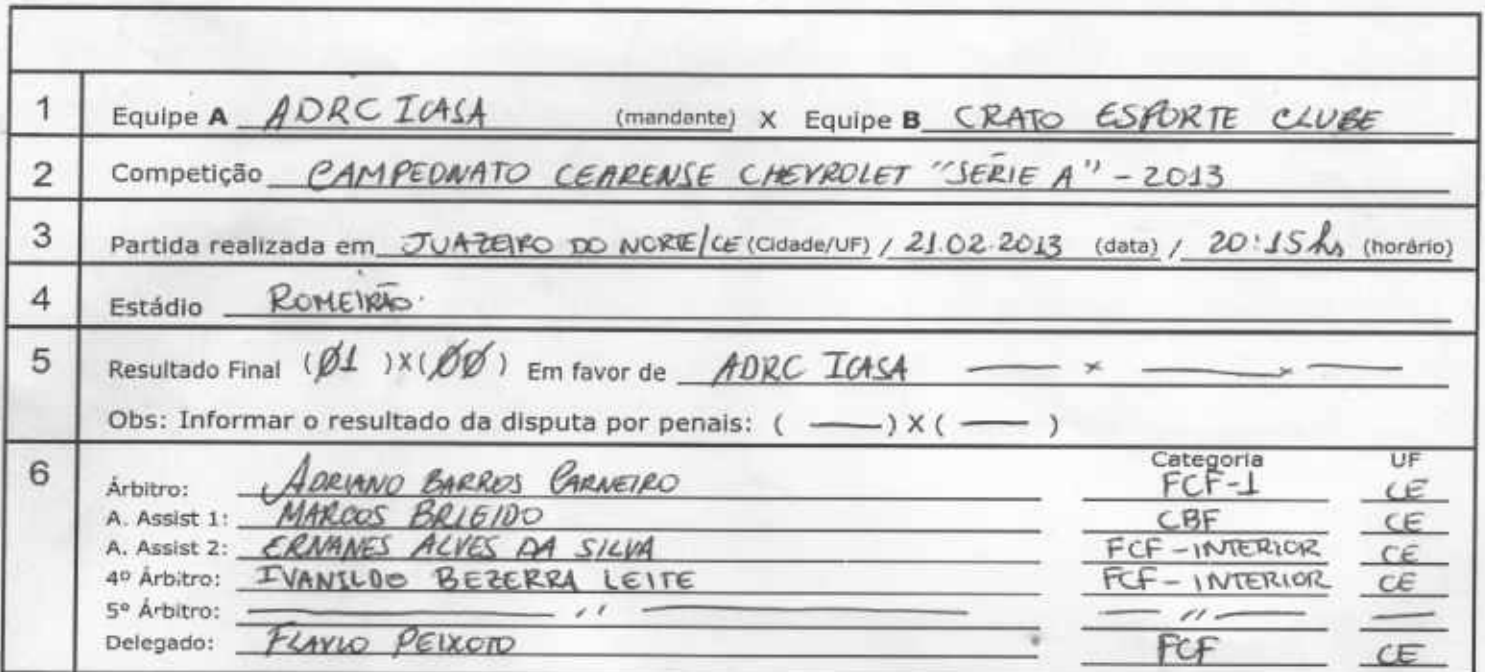 1 Equipe A ADRC ICASA (mandante) X Equipe B CRATO ESPORTE CLUBE
2 Competição CAMPEONATO CEARENSE CHEVROLET "SÉRIE A" - 2013
3 Partida realizada em JUAZEIRO DO NORTE/CE (Cidade/UF) / 21.02.2013 (data) / 20:15 hs (horário)
4 Estádio ROMEIRÃO.
5 Resultado Final (01) X (00) Em favor de ADRC ICASA — x — x —
Obs: Informar o resultado da disputa por penais: ( — ) X ( — )
6 Categoria UF
Árbitro: ADRIANO BARROS CARNEIRO FCF-1 CE
A. Assist 1: MARCOS BRIGIDO CBF CE
A. Assist 2: ERNANES ALVES DA SILVA FCF - INTERIOR CE
4º Árbitro: IVANILDO BEZERRA LEITE FCF - INTERIOR CE
5º Árbitro: — // — — // — —
Delegado: FLAVIO PEIXOTO FCF CE